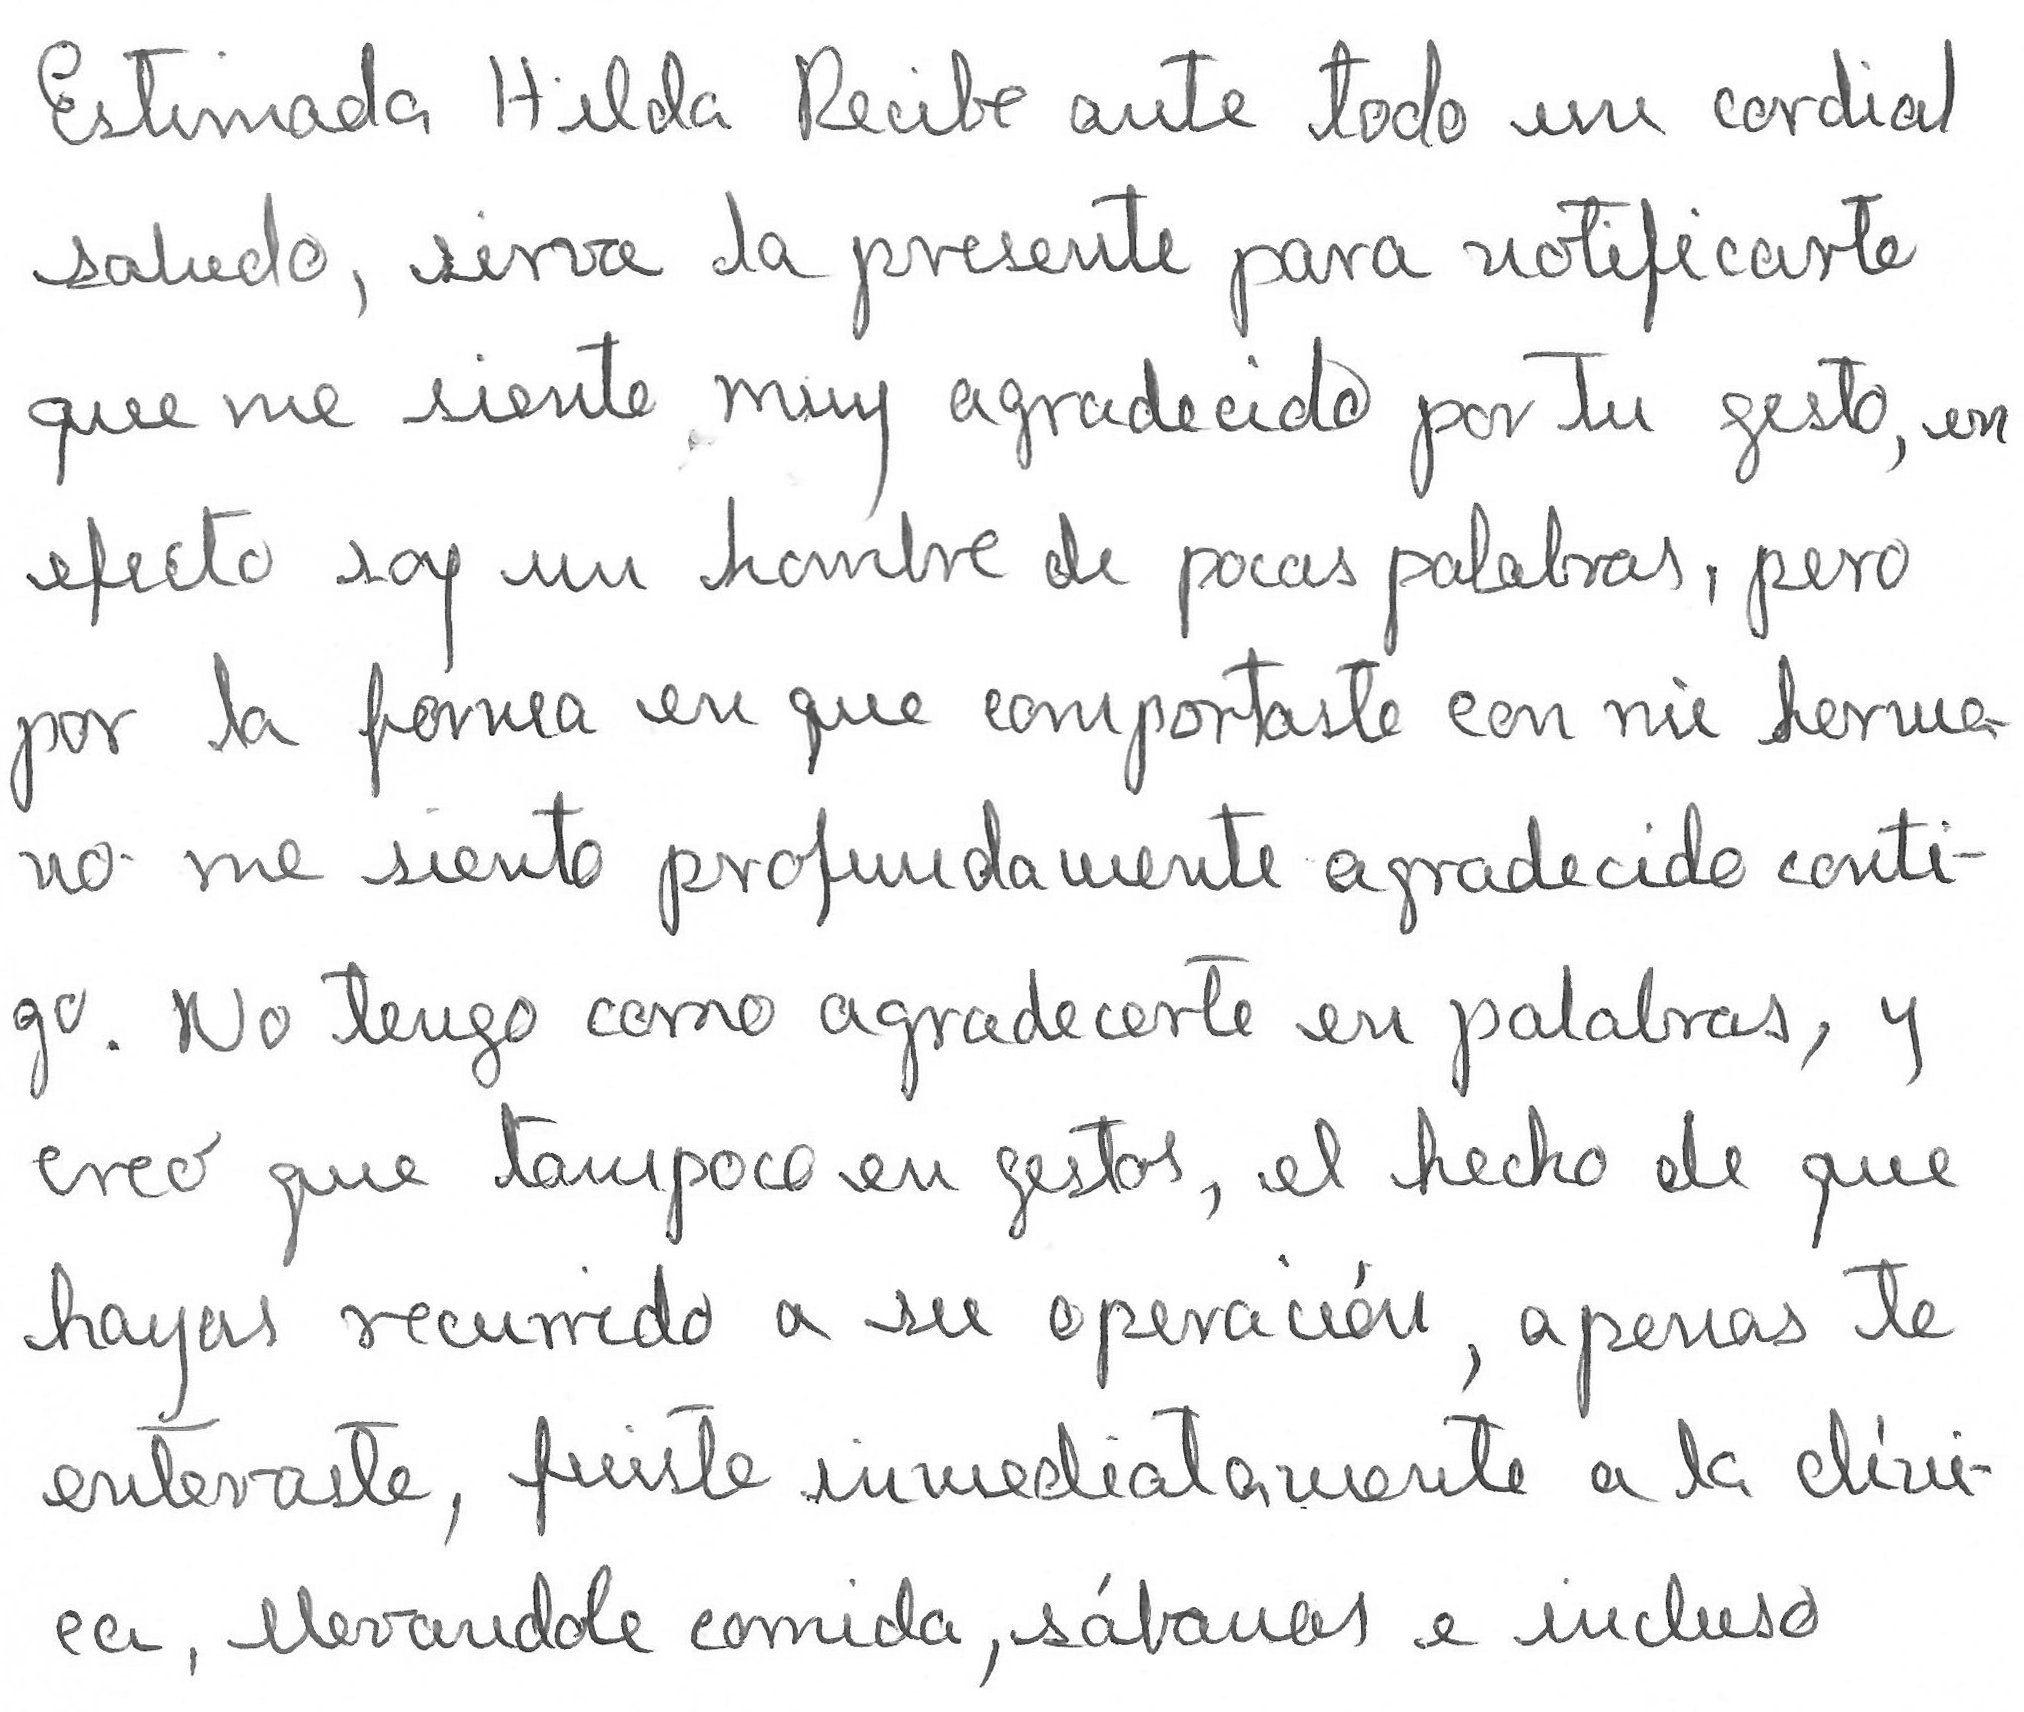 Estimada Hilda Recibe ante todo un cordial
saludo, sirva la presente para notificarte
que me siento muy agradecido por tu gesto, en
efecto soy un hombre de pocas palabras, pero
por la forma en que comportaste con mi herma-
no me siento profundamente agradecido conti-
go. No tengo como agradecerte en palabras, y
creo que tampoco en gestos, el hecho de que
hayas recurrido a su operación, apenas te
enteraste, fuiste inmediatamente a la clíni-
ca, llevandole comida, sábanas e incluso